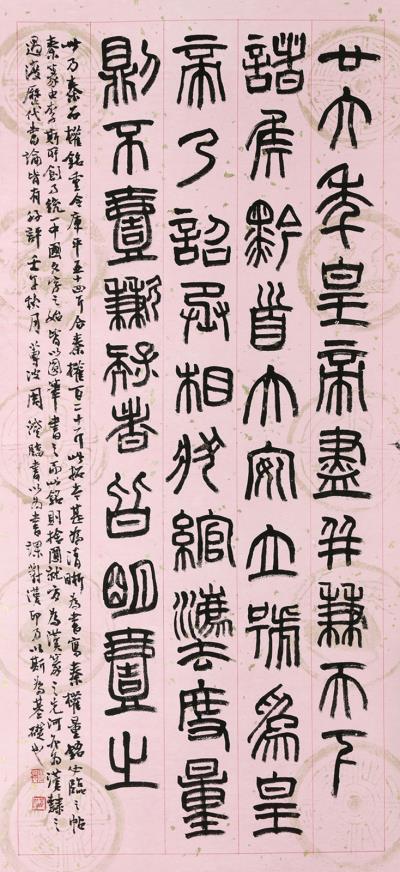 廿六年皇帝盡并兼天下
諸侯黔首大安立號為皇
帝乃詔丞相狀綰灋度量
則不壹歉疑者皆明壹之
此乃秦石權銘重合庫平五十四斤合秦權百二十斤此拓本甚為清晰為書寫秦權量銘必臨之帖
秦篆由李斯所創乃統中國文字之始皆以圓筆書之而此銘則捨圓就方為漢篆之先河亦為漢隸之
過渡歷代書論皆有好評壬午秋月蓴波周澄臨書以為書課對漢印乃以斯為基礎也